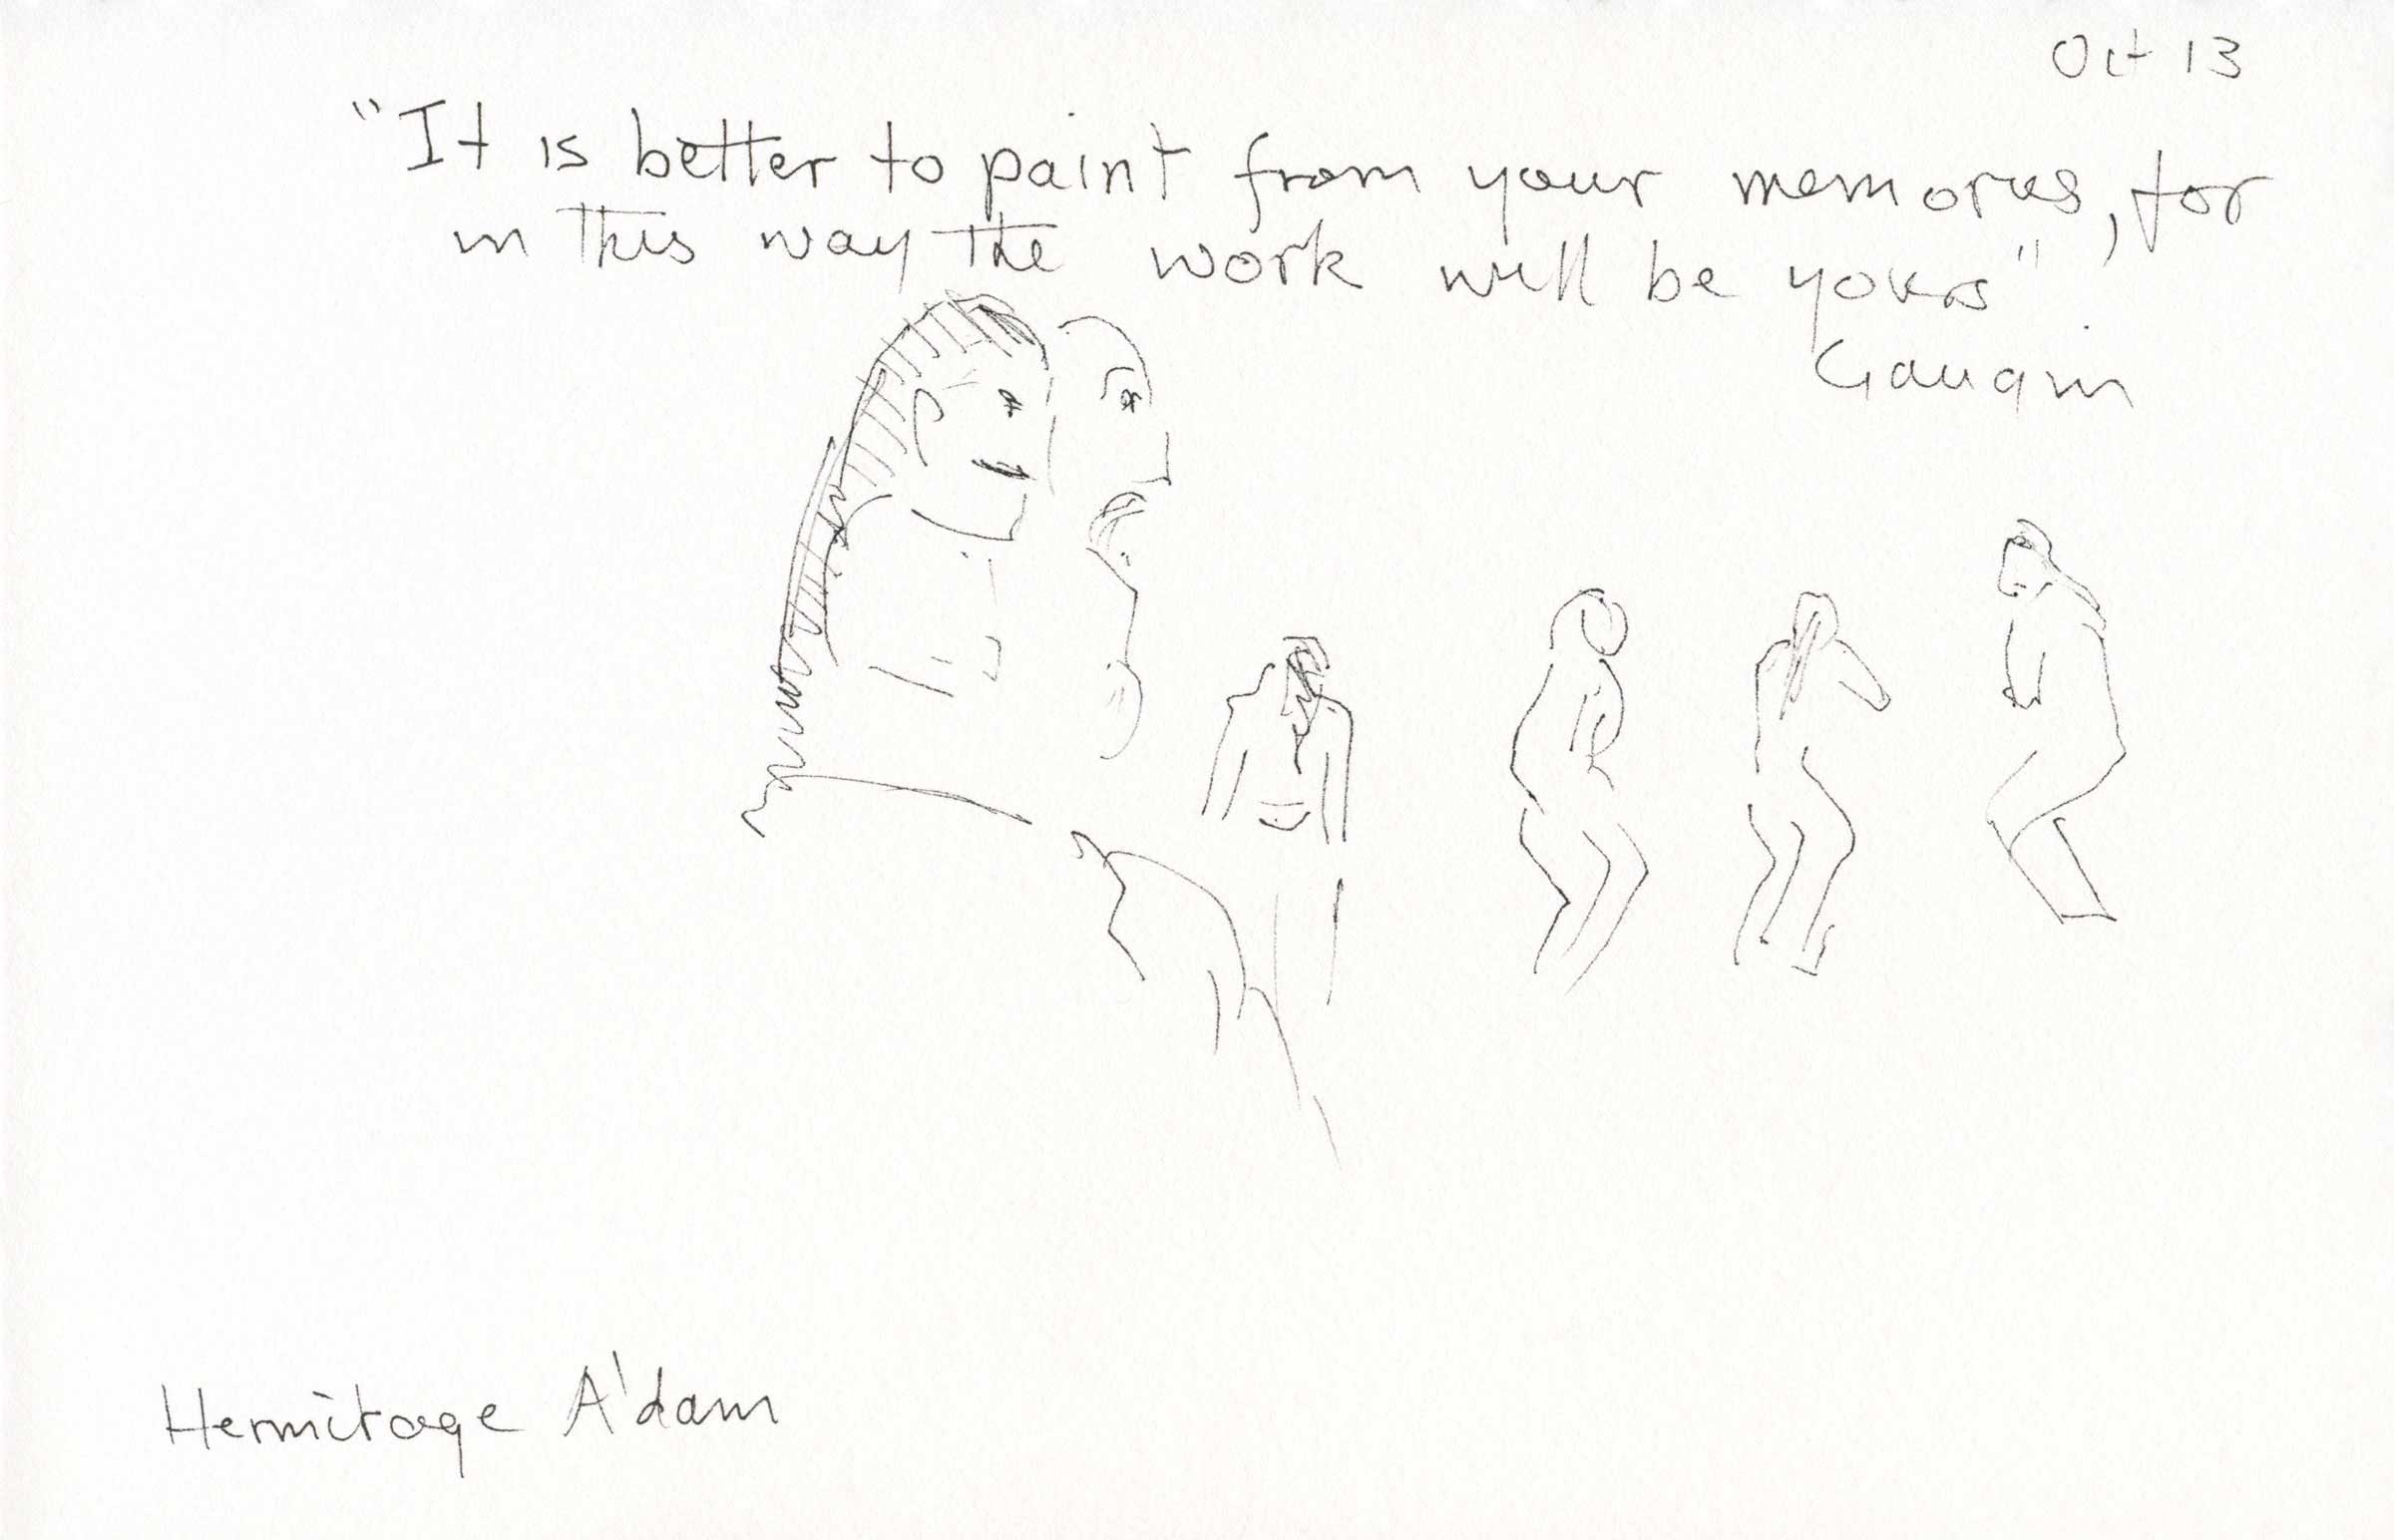 Oct 13
"It is better to paint from your memories, for
in this way the work will be yours"
Gauqin
Hermitage A'dam